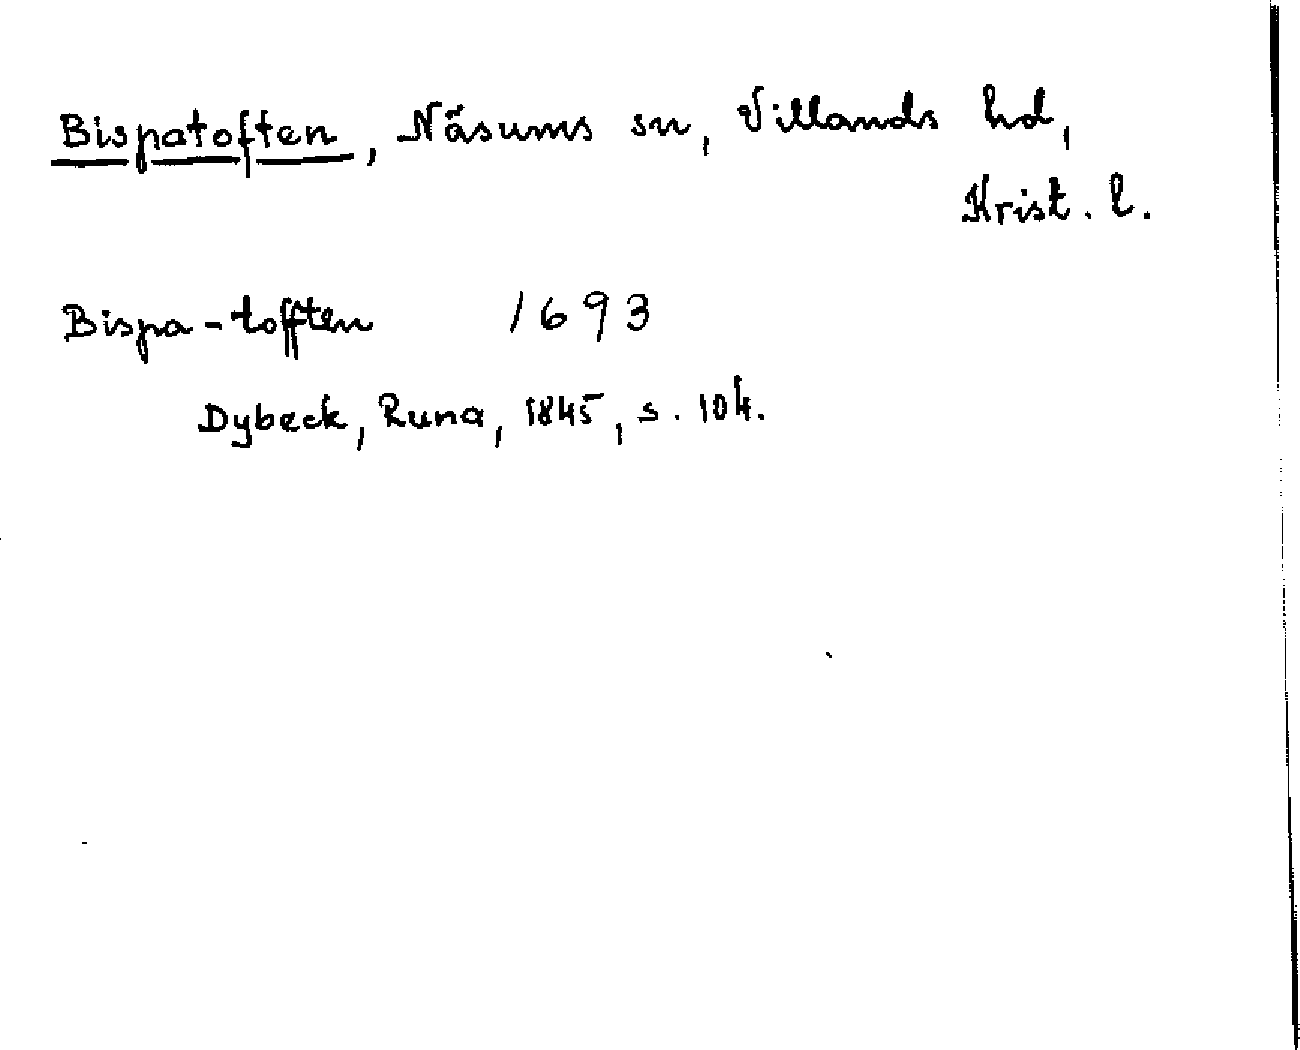 Bispatoften, Näsums sn, Villands hd,
Krist. l.
Bispa-tofften 1693
Dybeck, Runa, 1845, s. 104.